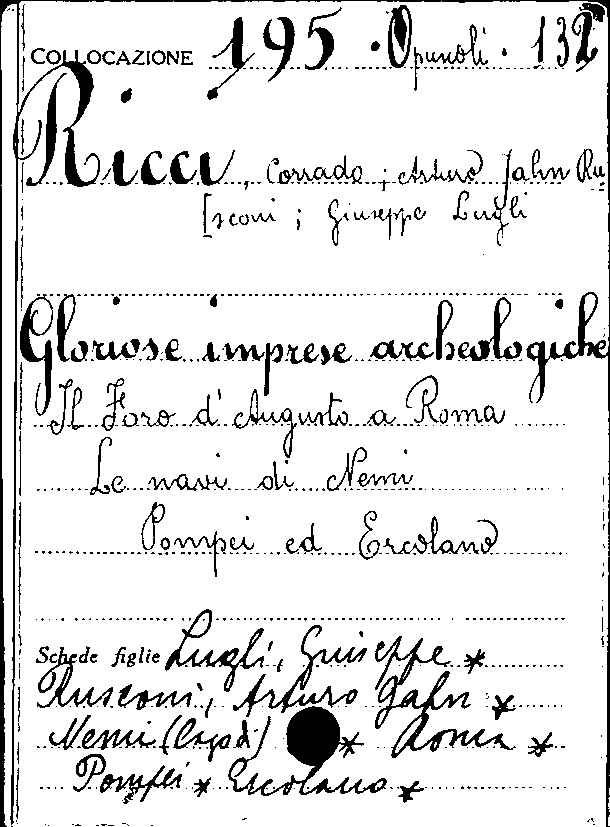 COLLOCAZIONE 195 · Opuscoli · 132
Ricci, Corrado; Arturo Jahn Ru
[sconi; Giuseppe Lugli
Gloriose imprese archeologiche
Il Foro d'Augusto a Roma
Le navi di Nemi
Pompei ed Ercolano
Schede figlie Lugli, Giuseppe *
Rusconi, Arturo Jahn *
Nemi * Roma *
Pompei * Ercolano *